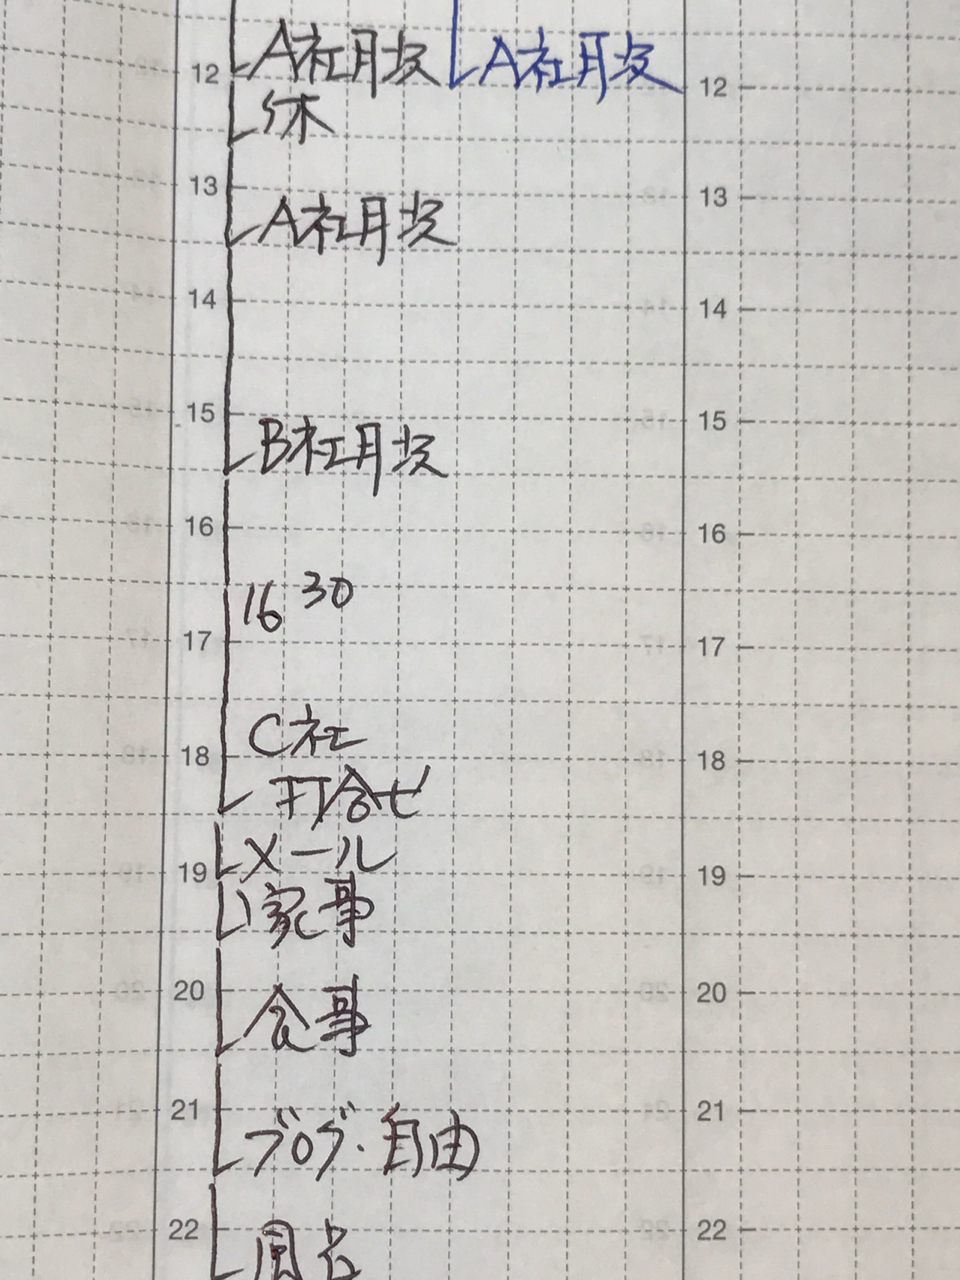 12 A社月次 A社月次 12
休
13 13
A社月次
14 14
15 15
B社月次
16 16
16 30
17 17
C社
18 18
打合せ
メール
19 19
家事
20 20
食事
21 21
ブログ・自由
22 22